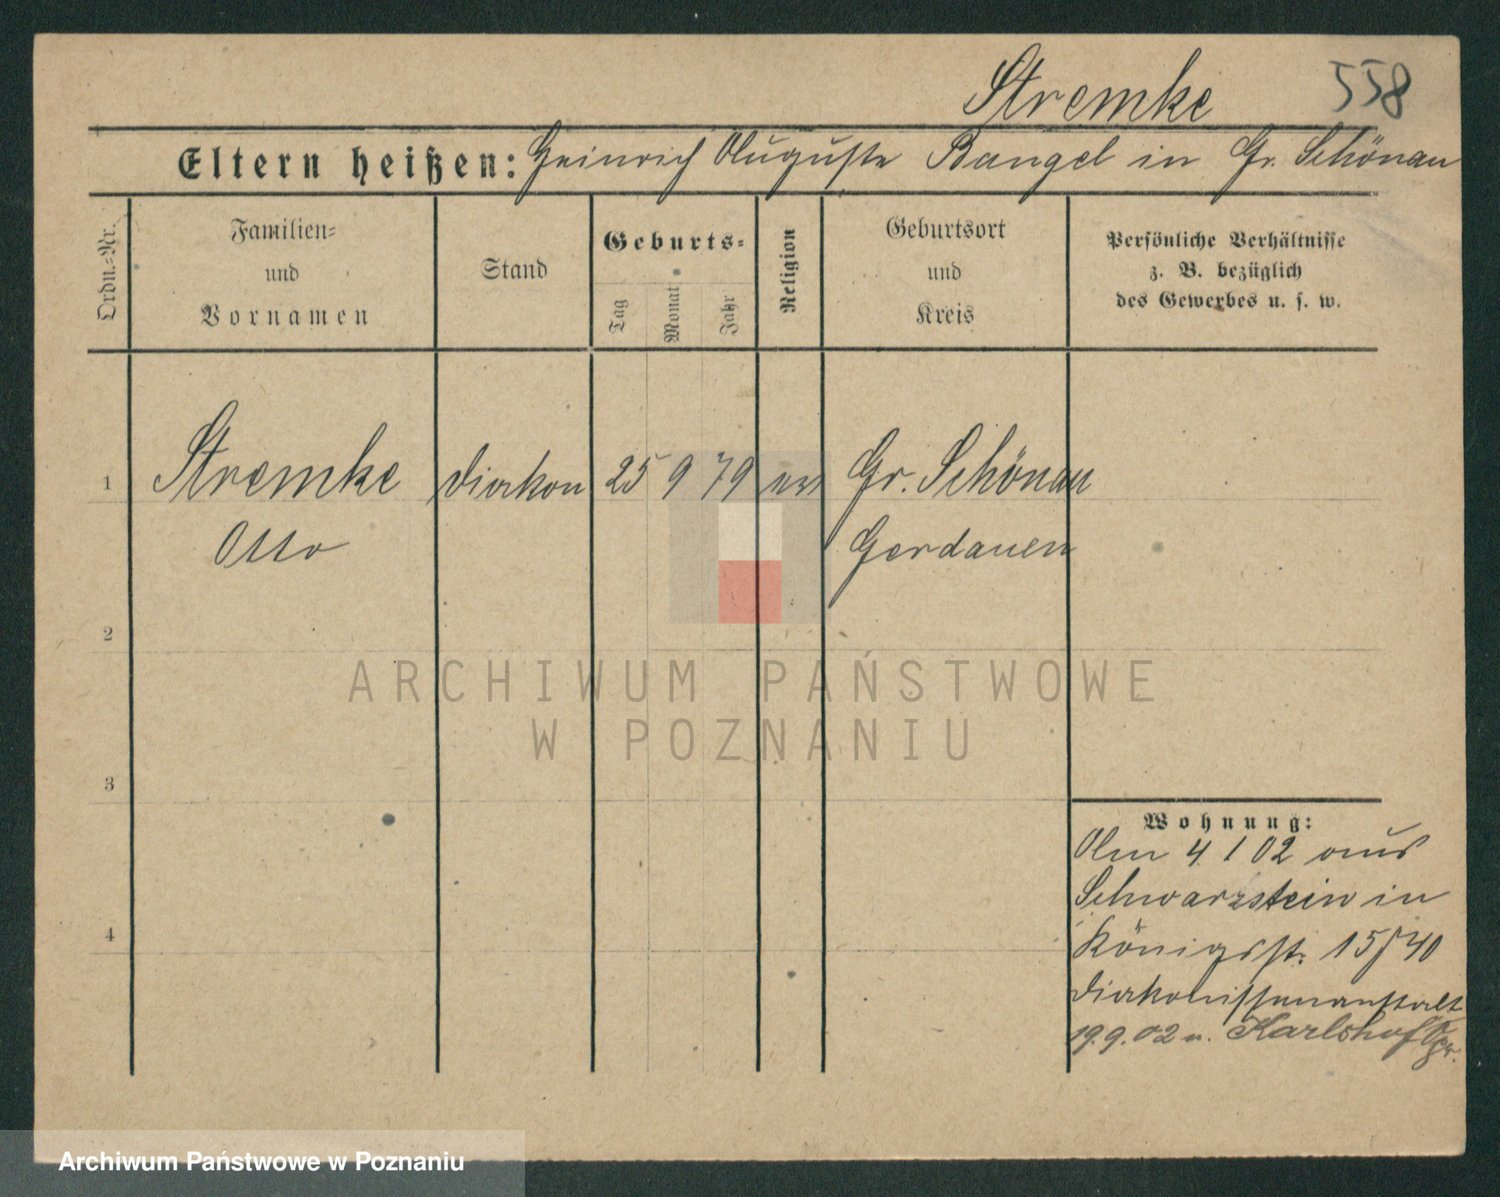 Stremke 558
Eltern heißen: Heinrich Auguste Bangel in Gr. Schönau
Ordn.-Nr.
Familien-
und
Vornamen
Stand
Geburts-
Tag
Monat
Jahr
Religion
Geburtsort
und
Kreis
Persönliche Verhältnisse
z. B. bezüglich
des Gewerbes u. s. w.
1 Stremke Diakon 25 9 79 ev Gr. Schönau
Otto Gerdauen
2
3
4
Wohnung:
Am 4 1 02 aus
Schwarzstein in
Königsstr. 15/40
Diakonissenanstalt
19.9.02 n. Karlshof Opr.
ARCHIWUM PAŃSTWOWE
W POZNANIU
Archiwum Państwowe w Poznaniu